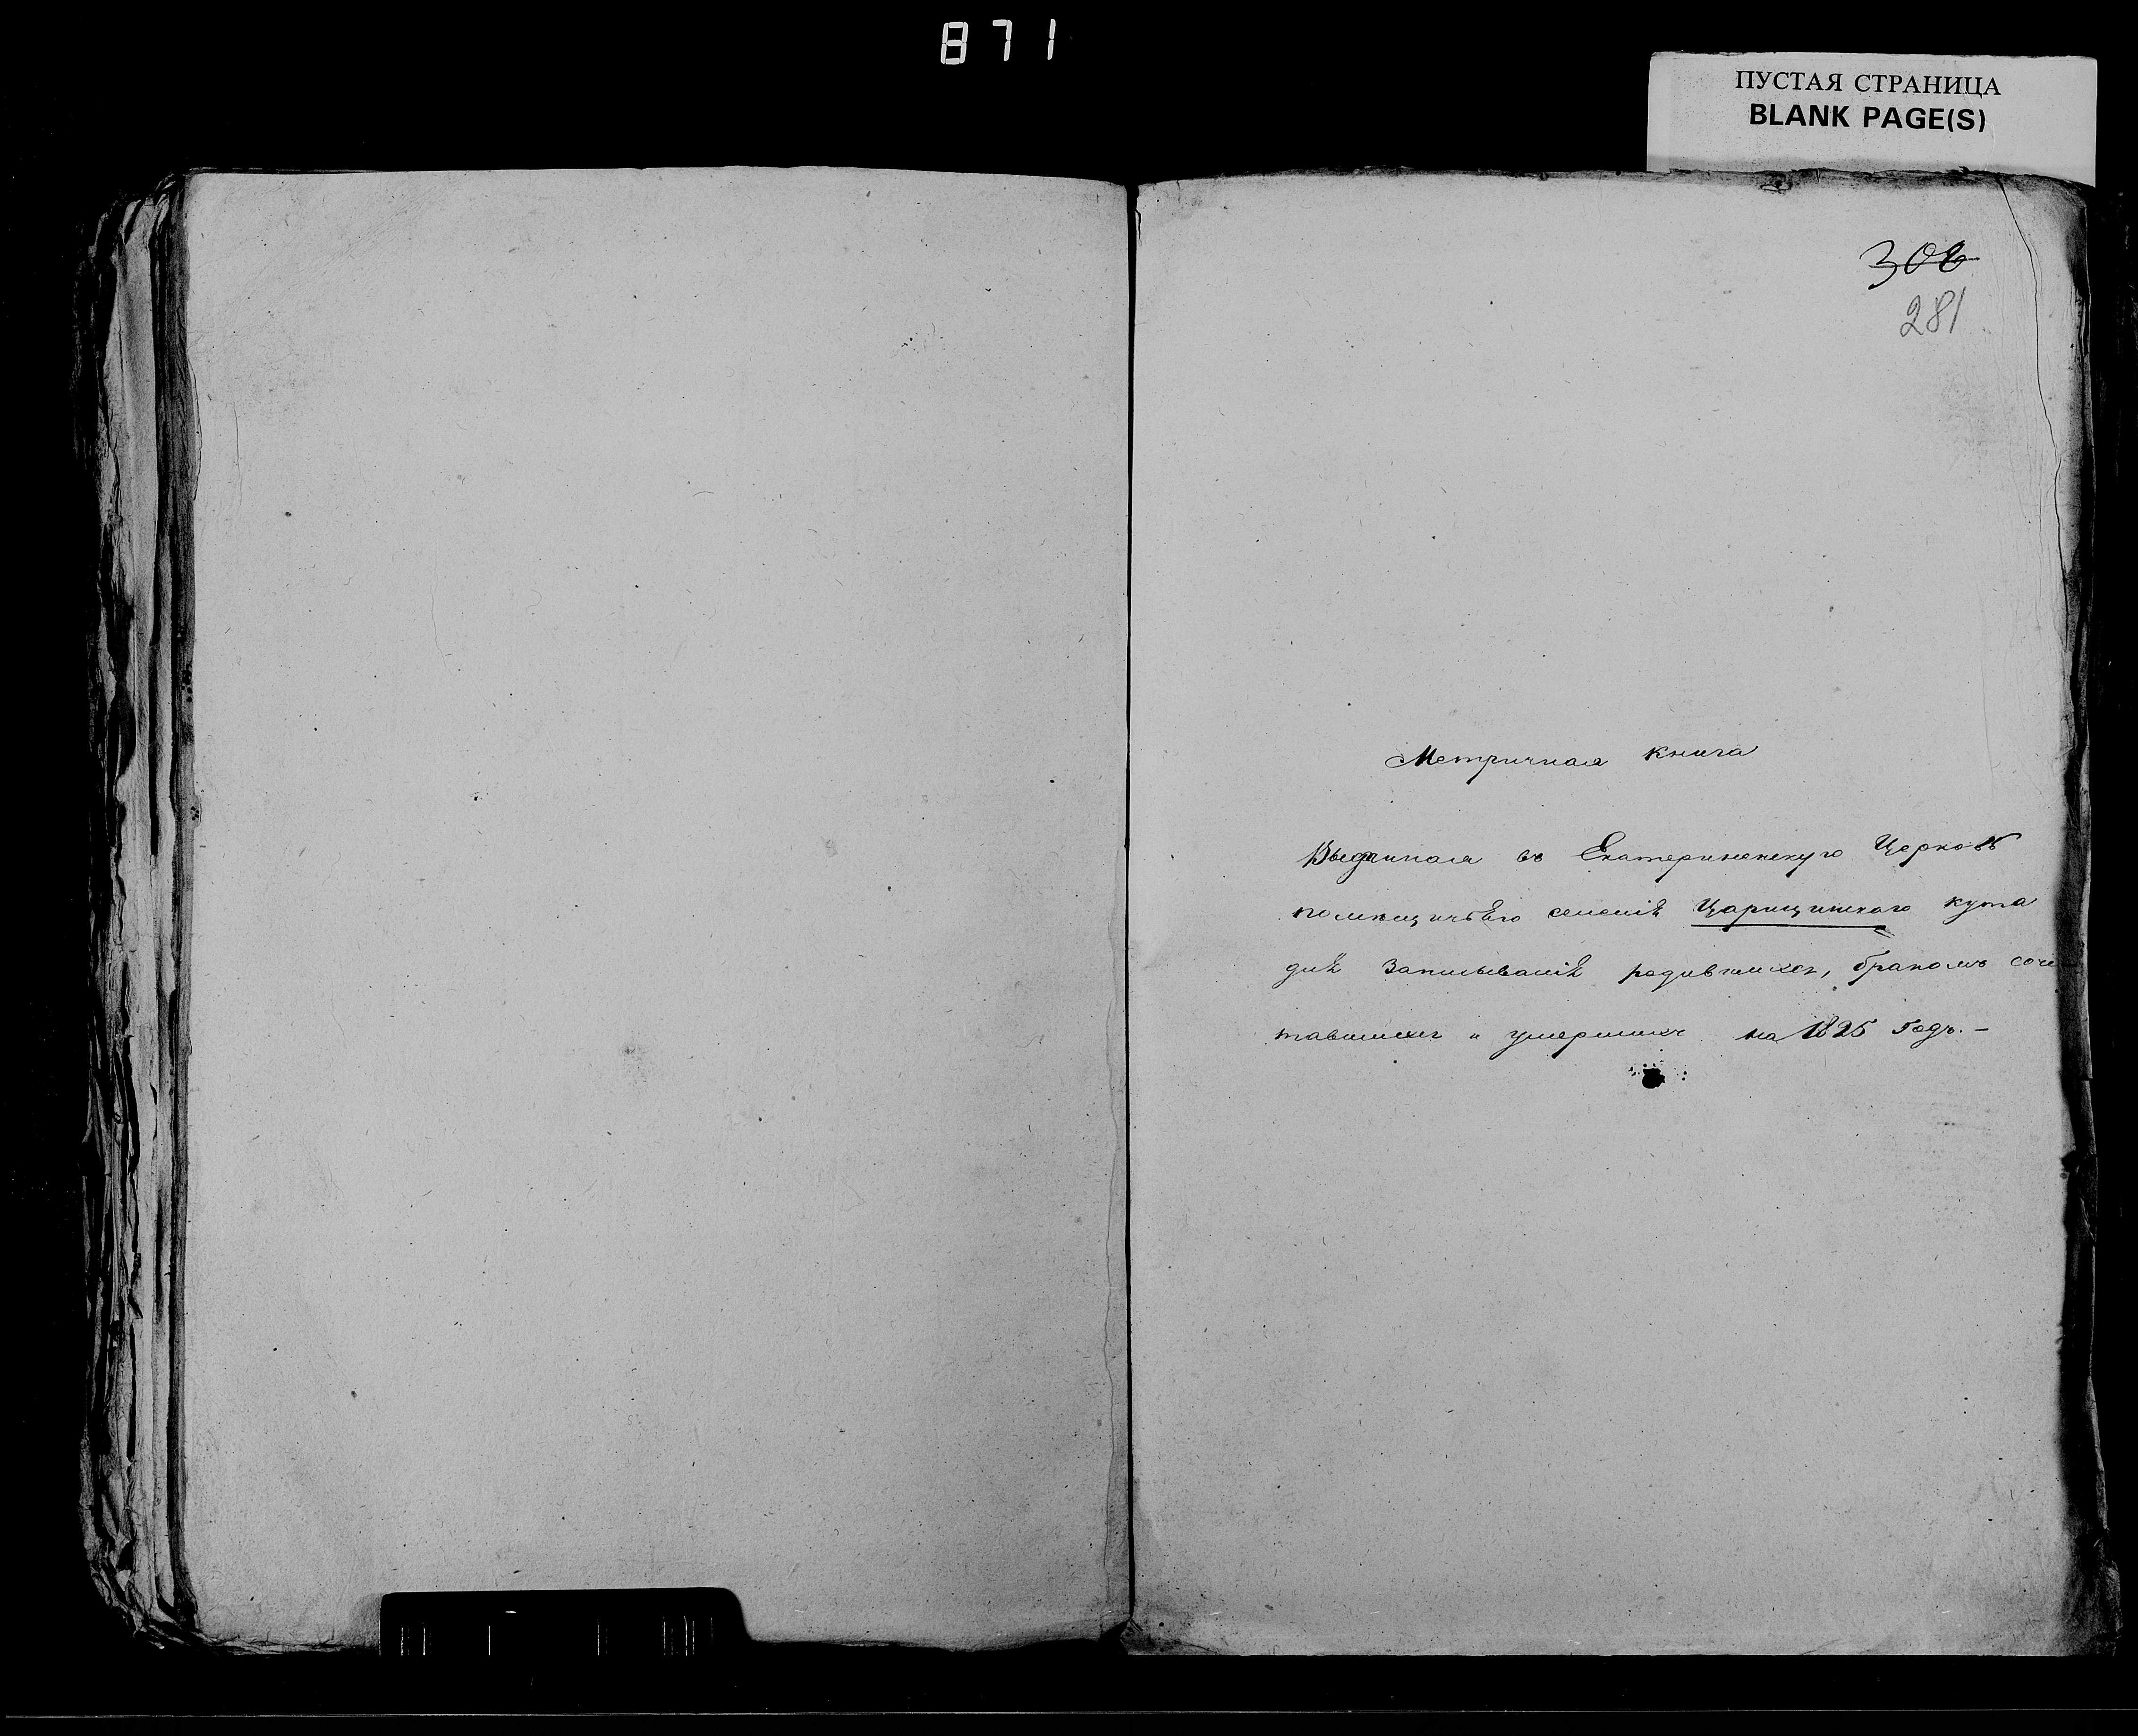 871
ПУСТАЯ СТРАНИЦА
BLANK PAGE(S)
308
281
Метричная книга
Выданная въ Екатерининскую Церковь
помѣщичьего селенія Царицинского кута
для Записыванія родившихся, бракомъ соче
тавшихся и умершихъ на 1825 Годъ. –